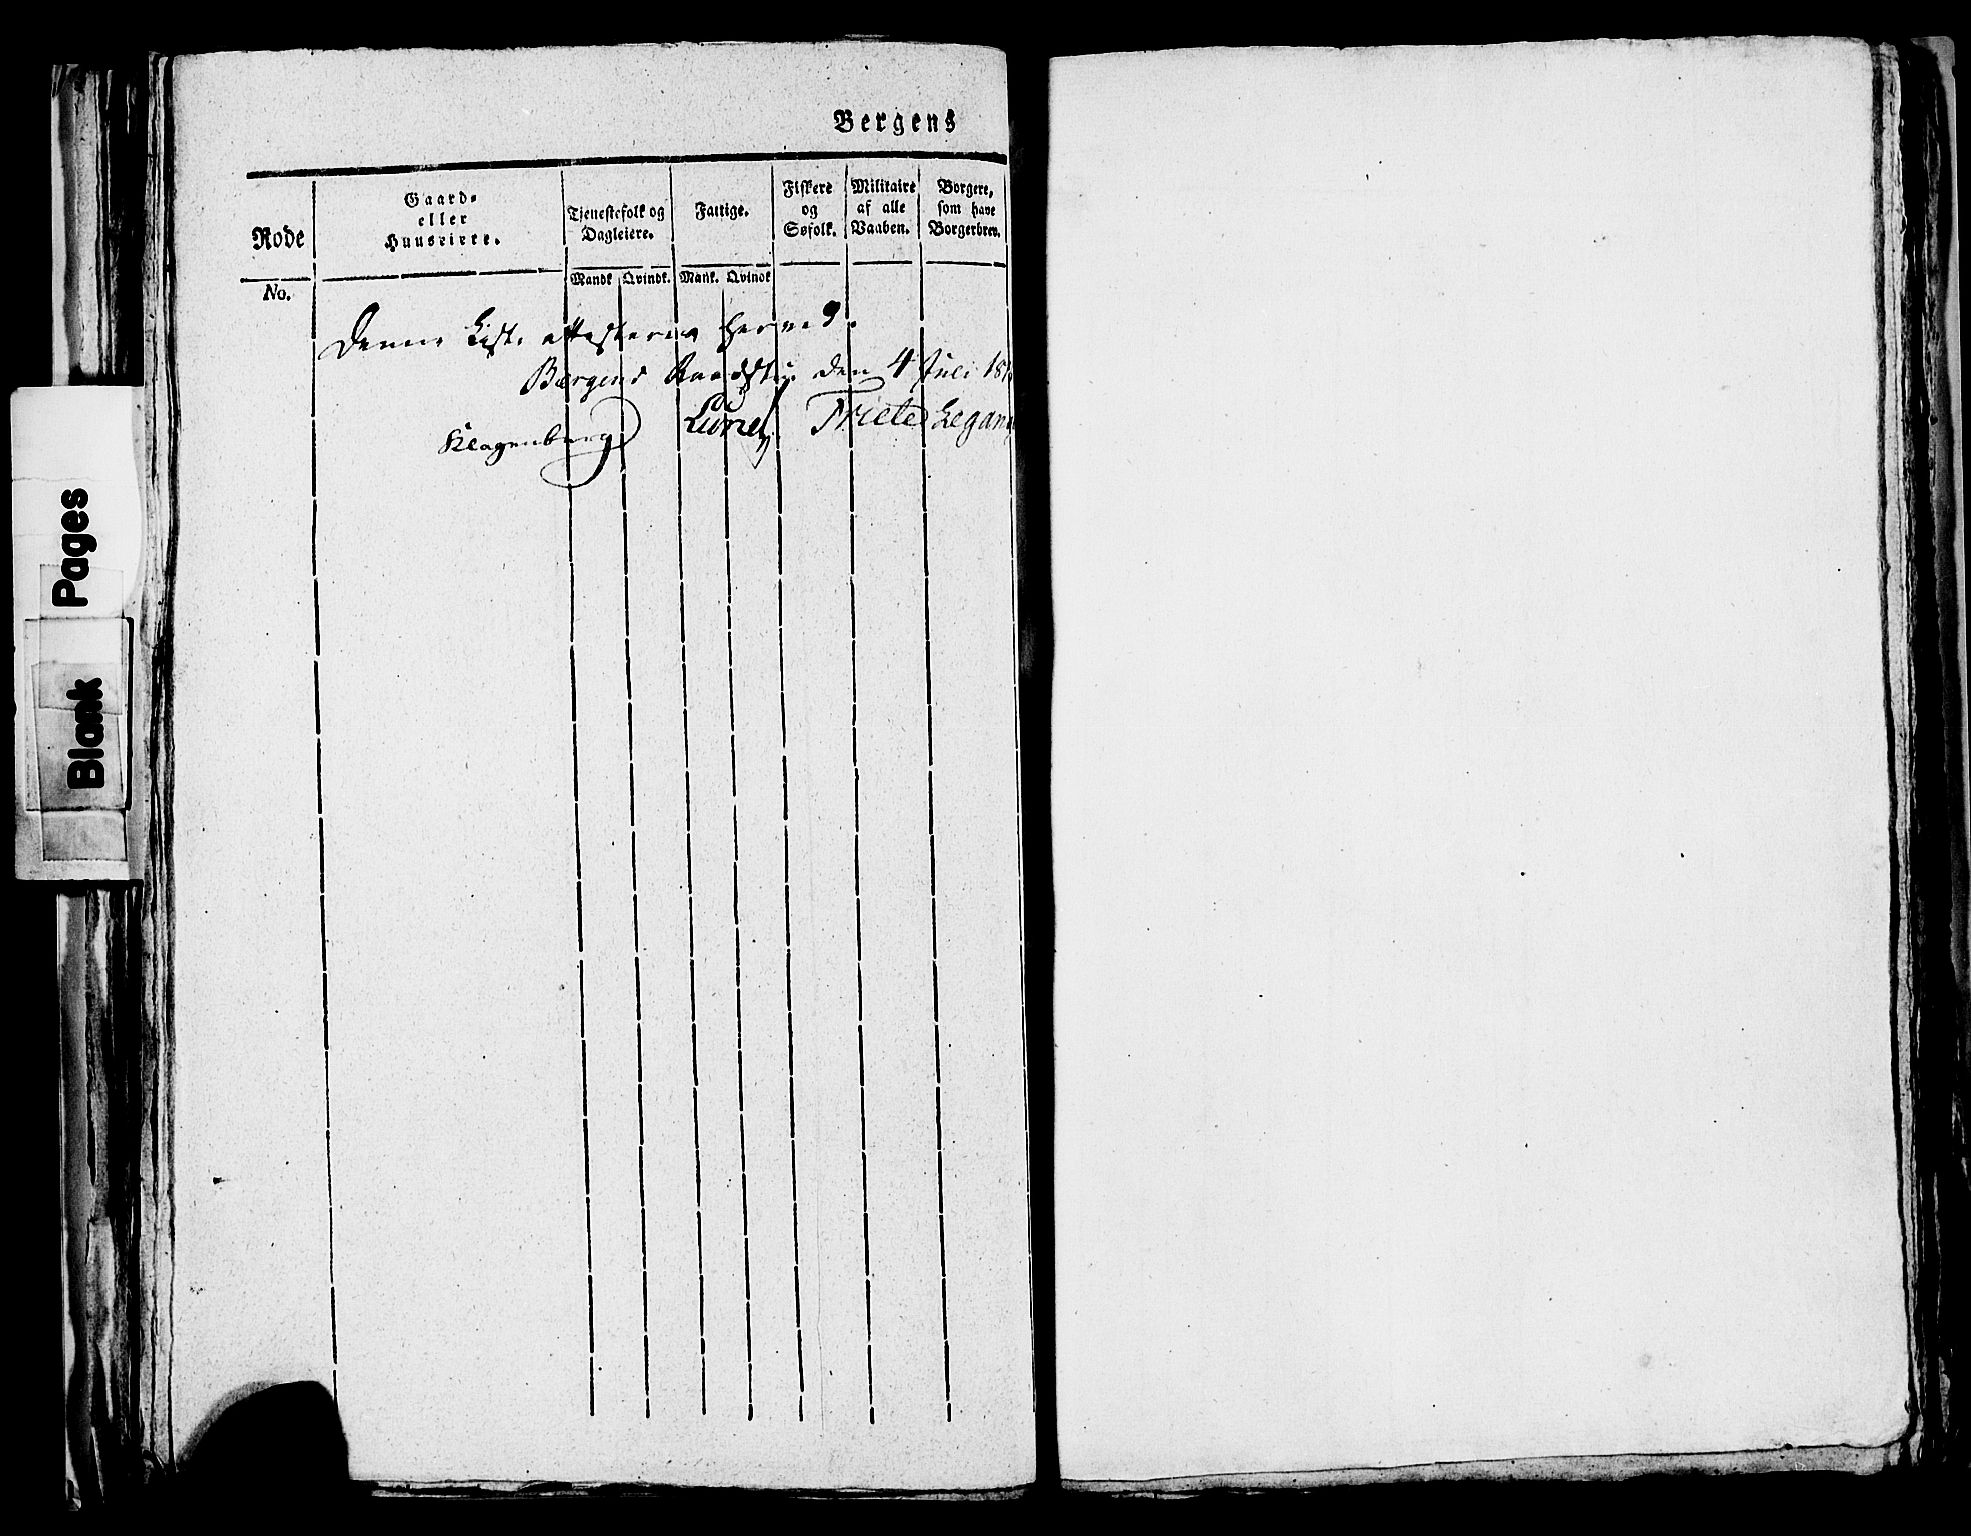 Blank Pages
Bergens
Rode
No.
Gaard-
eller
Huuseiere.
Tjenestefolk og
Dagleiere.
Mandk Qvindk.
Fattige.
Mank. Qvindk
Fiskere
og
Søfolk.
Militaire
af alle
Vaaben.
Borgere,
som have
Borgerbrev.
Denne Liste attesteres herved.
Bergens Raadstue den 4 Juli 181
Klagenberg Friele Legang